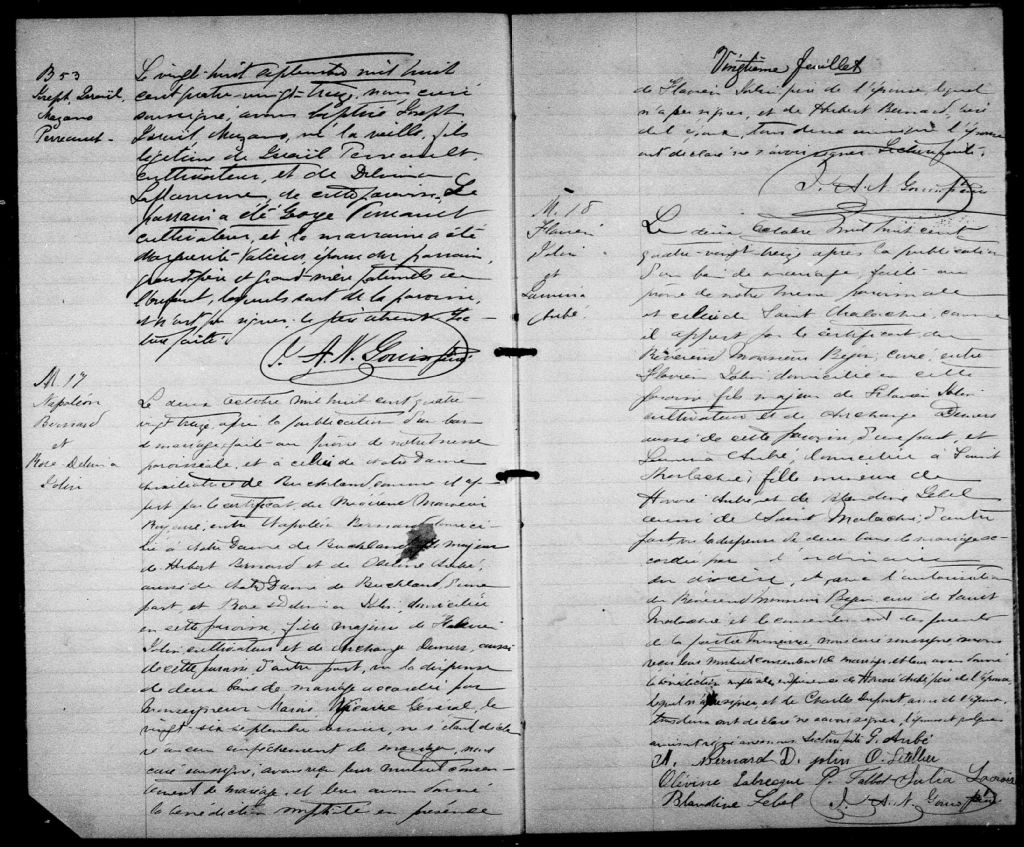 B 53
Joseph Israël
Nazaire
Perreault
Le vingt-huit septembre mil huit
cent quatre-vingt-treize, nous curé
soussigné, avons baptisé Joseph
Israël Nazaire, né la veille, fils
légitime de Israël Perreault
cultivateur, et de Délvina
de cette paroisse. Le
parrain a été Perreault
cultivateur, et la marraine a été
Marguerite épouse du parrain,
grand-père et grand-mère paternels de
l'enfant, lesquels sont de la paroisse,
et n'ont pu signer, le père absent. Lec-
ture faite.
J. A. N. Gouin ptre
M. 17
Napoléon
Bernard
et
Rose Delvina
Jolin
Le deux octobre mil huit cent quatre-
vingt treize, après la publication d'un ban
de mariage faite au prône de notre messe
paroissiale, et à celui de Notre Dame
de Buckland comme il ap-
pert par le certificat du Révérend Monsieur
entre Napoléon Bernard domici-
lié à Notre Dame de Buckland fils majeur
de Hubert Bernard et de Aubé,
aussi de Notre Dame de Buckland d'une
part, et Rose Delvina Jolin, domiciliée
en cette paroisse, fille majeure de Flavien
Jolin cultivateur et de Archange Demers, aussi
de cette paroisse d'autre part, vu la dispense
de deux bans de mariage accordée par
Monseigneur Marois Vicaire Général, le
vingt-six septembre dernier, ne s'étant décla-
ré aucun empêchement de mariage, nous
curé soussigné, avons reçu leur mutuel consen-
tement de mariage, et leur avons donné
la bénédiction nuptiale en présence
Vingtième feuillet
de Flavien Jolin père de l'épouse, lequel
n'a pu signer, et de Hubert Bernard, père
de l'époux, tous deux ainsi que l'épouse
ont déclaré ne savoir signer. Lecture faite.
J. A. N. Gouin ptre
M. 18
Flavien
Jolin
et
Aubé
Le deux octobre mil huit cent
quatre-vingt treize après la publication
d'un ban de mariage, faite au
prône de notre messe paroissiale
et celui de Saint Malachie, comme
il appert par le certificat du
Révérend Monsieur curé, entre
Flavien Jolin domicilié en cette
paroisse fils majeur de Flavien Jolin
cultivateur et de Archange Demers
aussi de cette paroisse, d'une part, et
Aubé, domiciliée à Saint
Malachie; fille mineure de
Honoré Aubé et de Blandine Lebel
aussi de Saint Malachie, d'autre
part vu la dispense de deux bans de mariage ac-
cordée par l'ordinaire
du diocèse, et vu l'autorisation
du Révérend Monsieur curé de Saint
Malachie et le consentement des parents
de la partie mineure, nous curé soussigné avons
reçu leur mutuel consentement de mariage et leur avons donné
la bénédiction nuptiale, en présence de Honoré Aubé père de l'épouse,
lequel n'a pu signer, et de Charles ami de l'époux,
tous deux ont déclaré ne savoir signer, l'épouse et plusieurs
avec nous. Lecture faite G. Aubé
A. Bernard D. Jolin O. Letellier
Olivine Labrecque P. Talbot Julia Lacroix
Blandine Lebel J. A. N. Gouin ptre